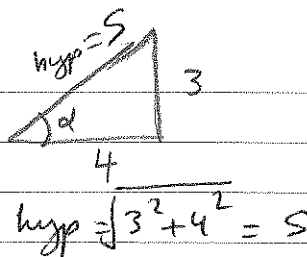 hyp = 5
3
α
4
hyp = √3² + 4² = 5